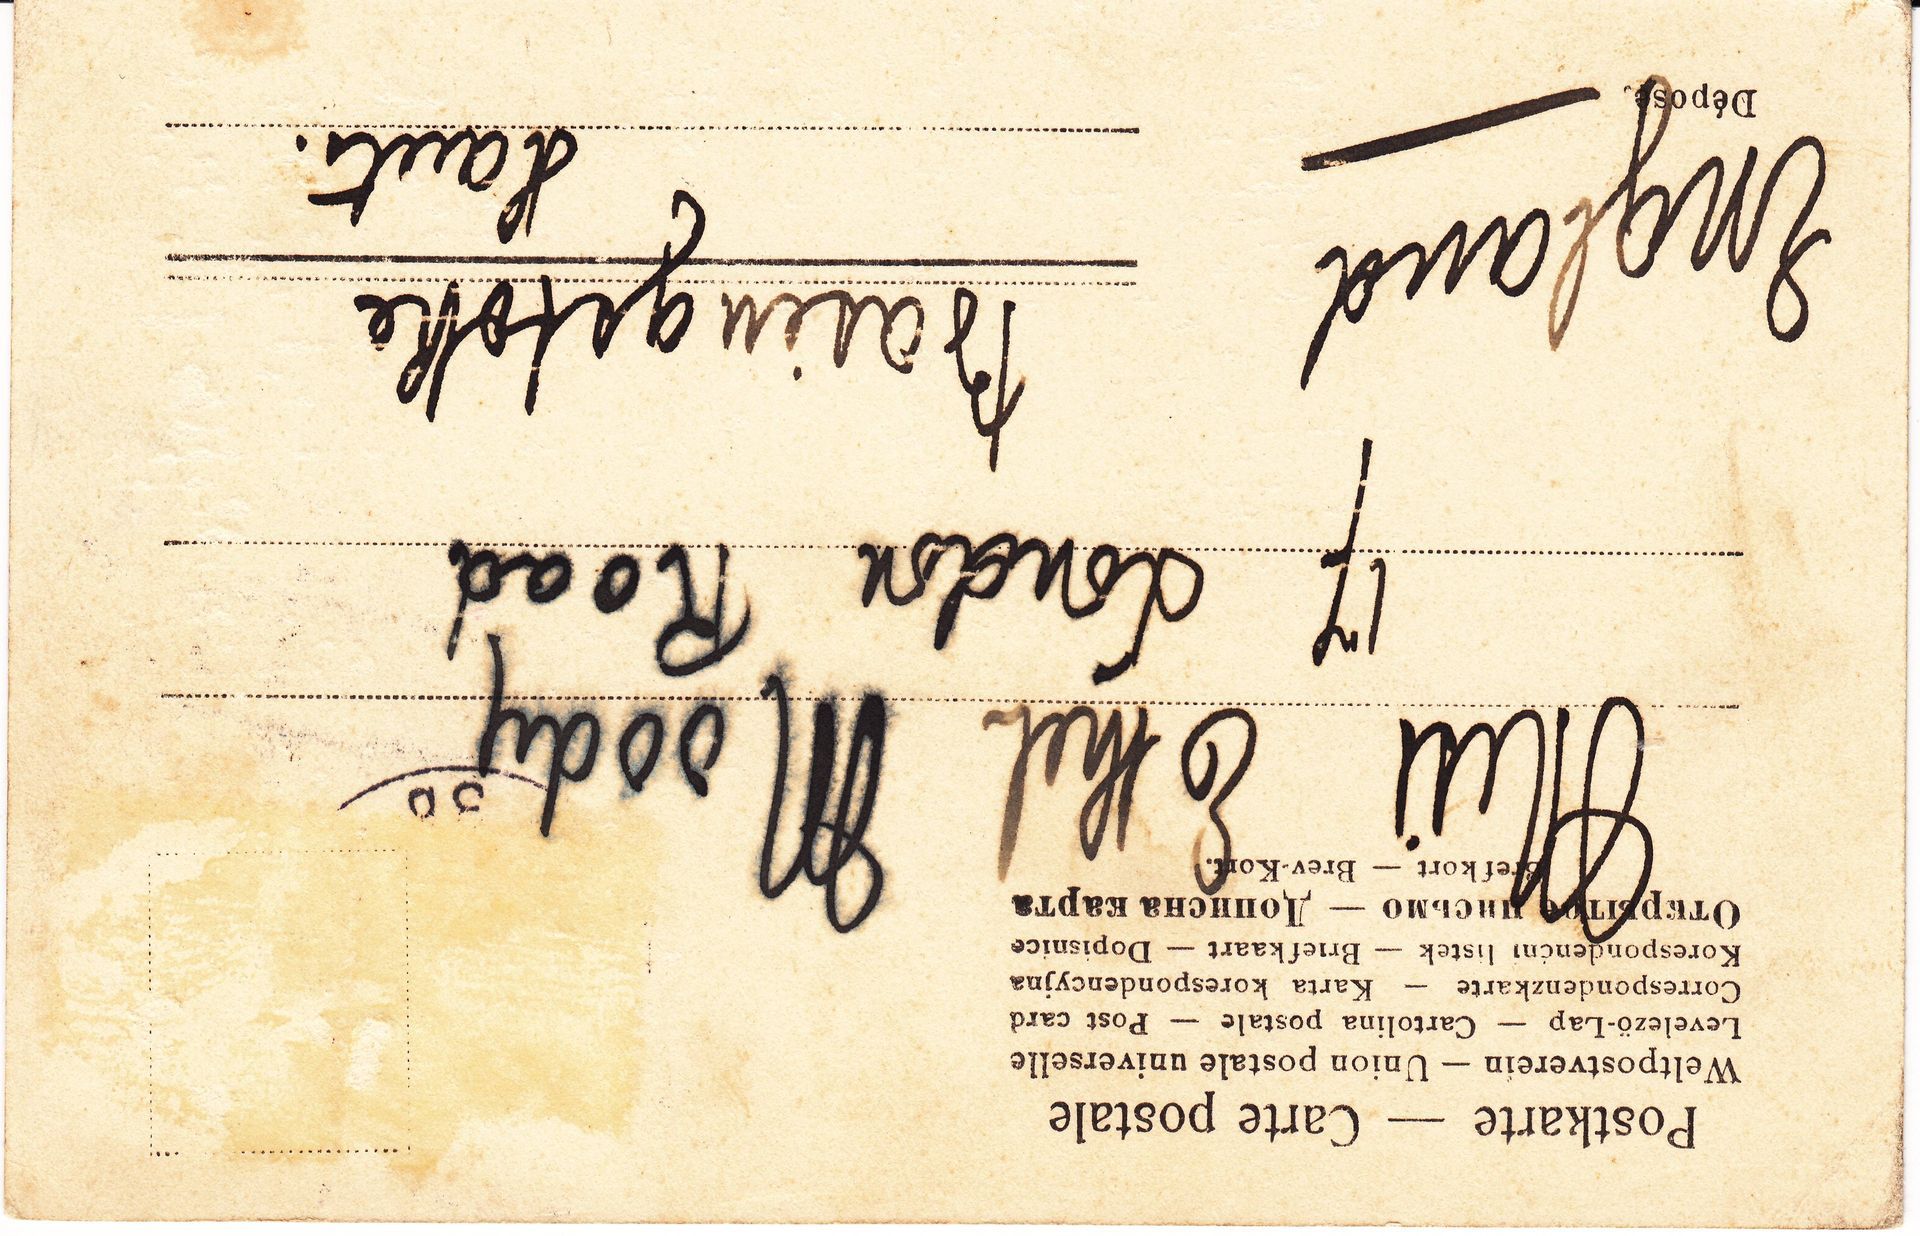 Postkarte — Carte postale
Weltpostverein — Union postale universelle
Levelező-Lap — Cartolina postale — Post card
Correspondenzkarte — Karta korespondencyjna
Korespondenčni listek — Briefkaart — Dopisnice
Открытое письмо — Дописна карта
Brefkort — Brev-Kort.
Miss Ethel Moody
17 London Road
Basingstoke
Hants.
England
Déposé.